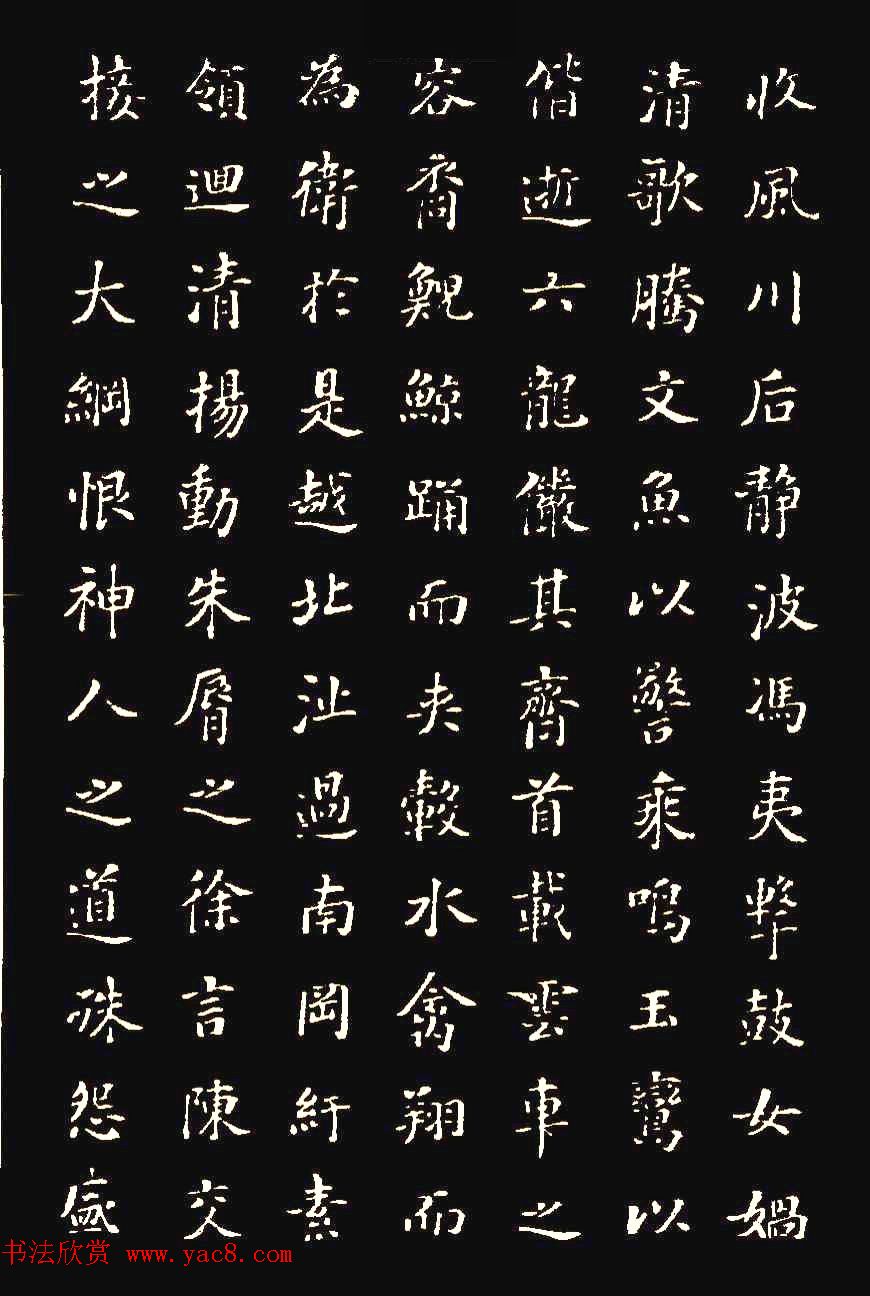 收風川后静波馮夷擊鼓女媧
清歌騰文魚以警乘鳴玉鸞以
偕逝六龍儼其齊首載雲車之
容裔鯢鯨踊而夾轂水禽翔而
為衛於是越北沚過南岡紆素
領迴清揚動朱脣之徐言陳交
接之大綱恨神人之道殊怨盛
书法欣赏 www.yac8.com